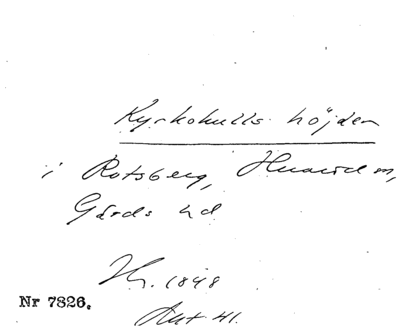 Kyrkokulls höjden
i Rotsberg, Hvared sn,
Gärds hd
Hg. 1848
Nr 7826.
Ant 41.